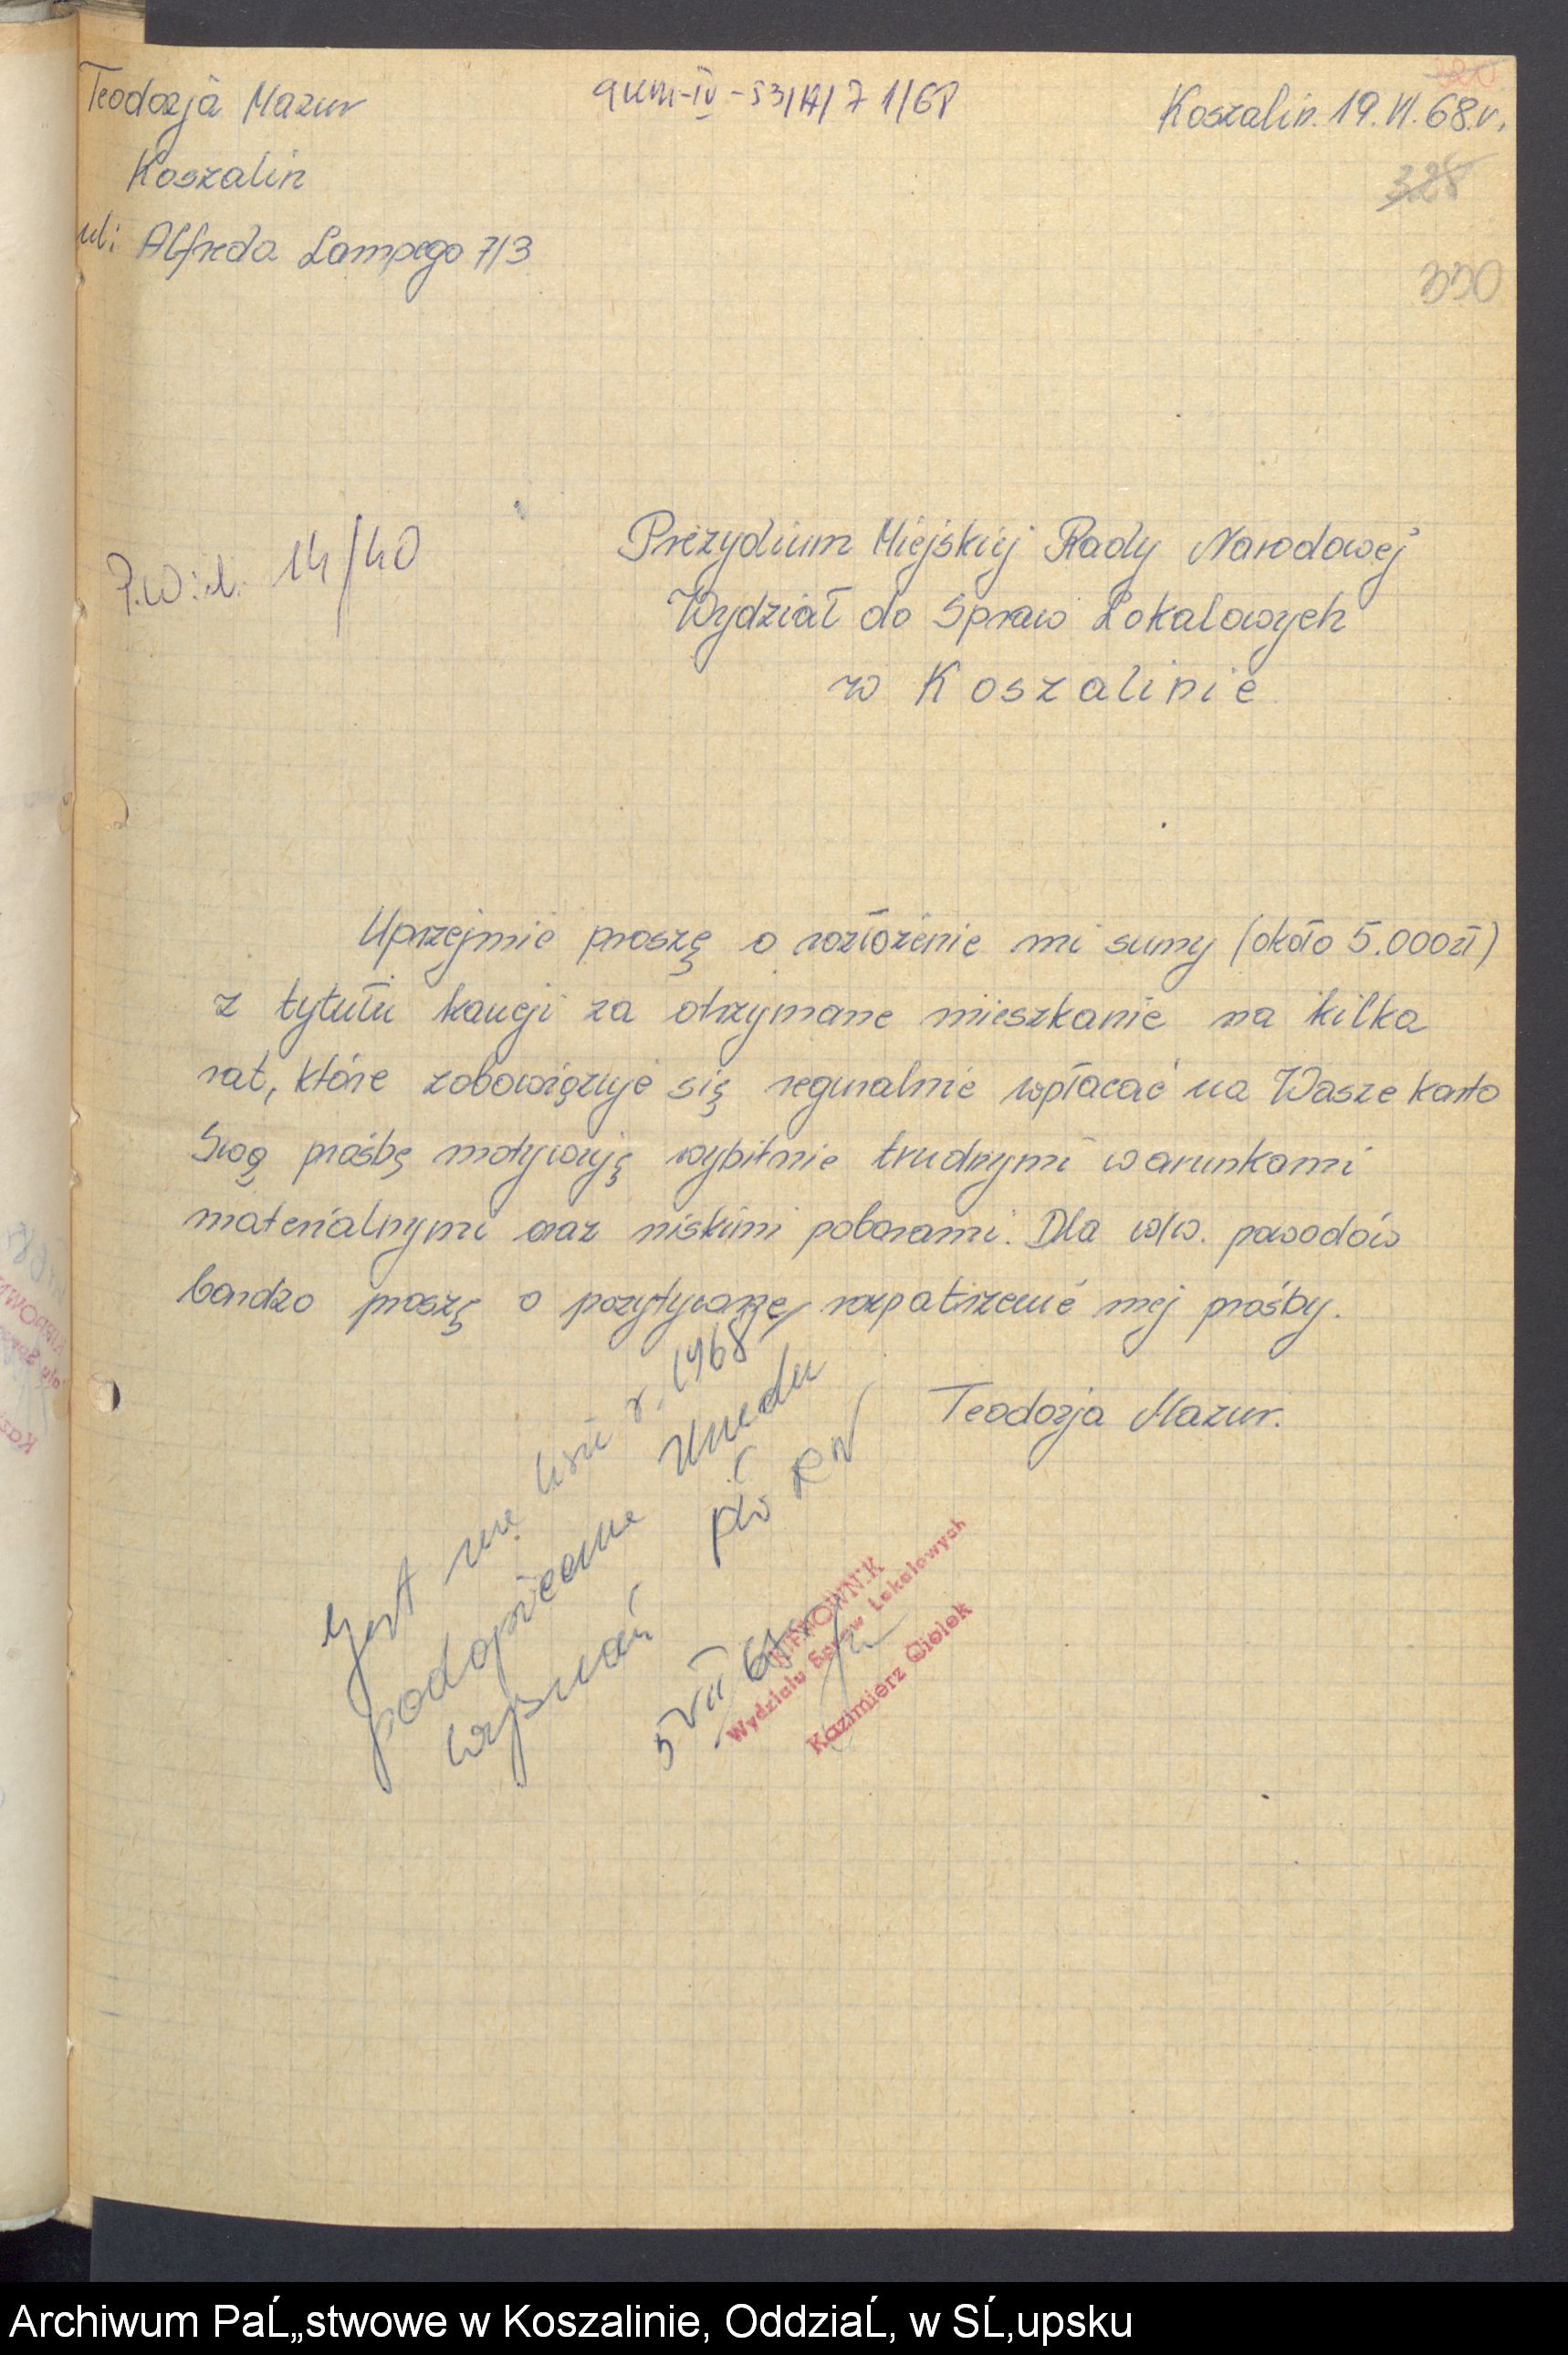 Teodozja Mazur
Koszalin
ul. Alfreda Lampego 7/3
Koszalin. 19.VI.68.r.
328
330
14/40
Prezydium Miejskiej Rady Narodowej
Wydział do Spraw Lokalowych
w Koszalinie
Uprzejmie proszę o rozłożenie mi sumy (około 5.000zł)
z tytułu kaucji za otrzymane mieszkanie na kilka
rat, które zobowiązuje się reguralnie wpłacać na Wasze konto
Swą prośbę motywuję wybitnie trudnymi warunkami
materialnymi oraz niskimi poborami. Dla w/w. powodów
bardzo proszę o pozytywne rozpatrzenie mej prośby.
Teodozja Mazur.
Jest na r. 1968
5 VII 68
KIEROWNIK
Wydziału Spraw Lokalowych
Kazimierz Ciołek
Archiwum PaĹ„stwowe w Koszalinie, OddziaĹ‚ w SĹ‚upsku